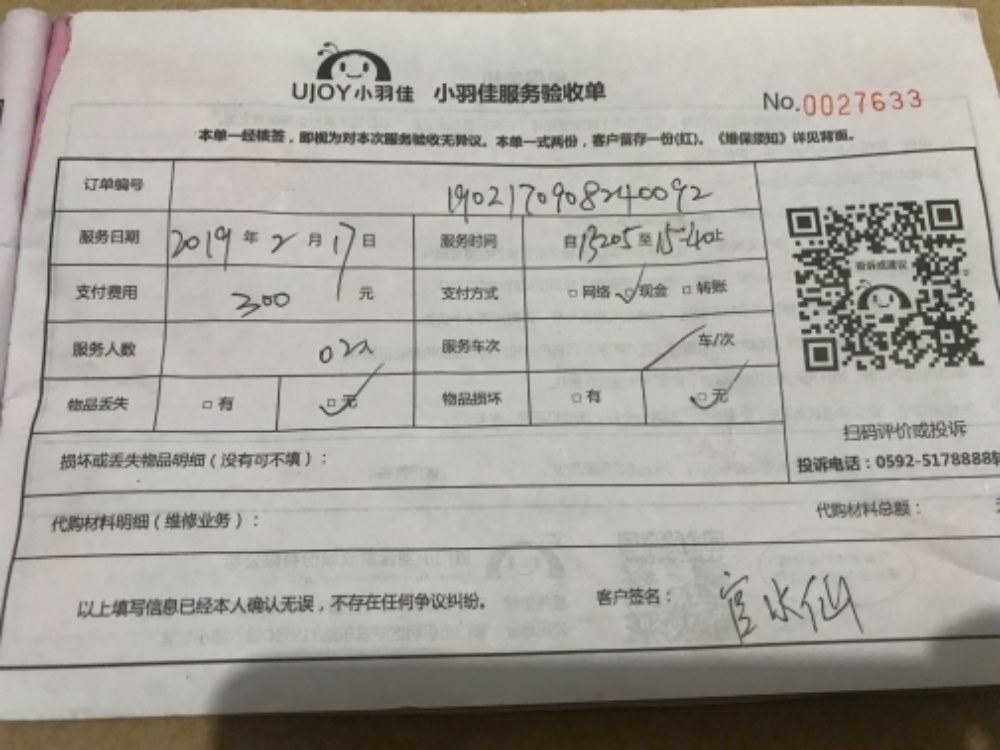 UJOY小羽佳 小羽佳服务验收单
No.0027633
本单一经核签，即视为对本次服务验收无异议。本单一式两份，客户留存一份(红)。《维保须知》详见背面。
订单编号 1902170908240092
服务日期 2019年2月17日 服务时间 自13205至15-40止
支付费用 300元 支付方式 □网络 ✓□现金 □转账
服务人数 02人 服务车次 / 车/次
物品丢失 □有 ✓□无 物品损坏 □有 ✓□无
投诉或建议
扫码评价或投诉
投诉电话：0592-5178888转
损坏或丢失物品明细（没有可不填）：
代购材料明细（维修业务）： 代购材料总额：
以上填写信息已经本人确认无误，不存在任何争议纠纷。 客户签名：官水仙